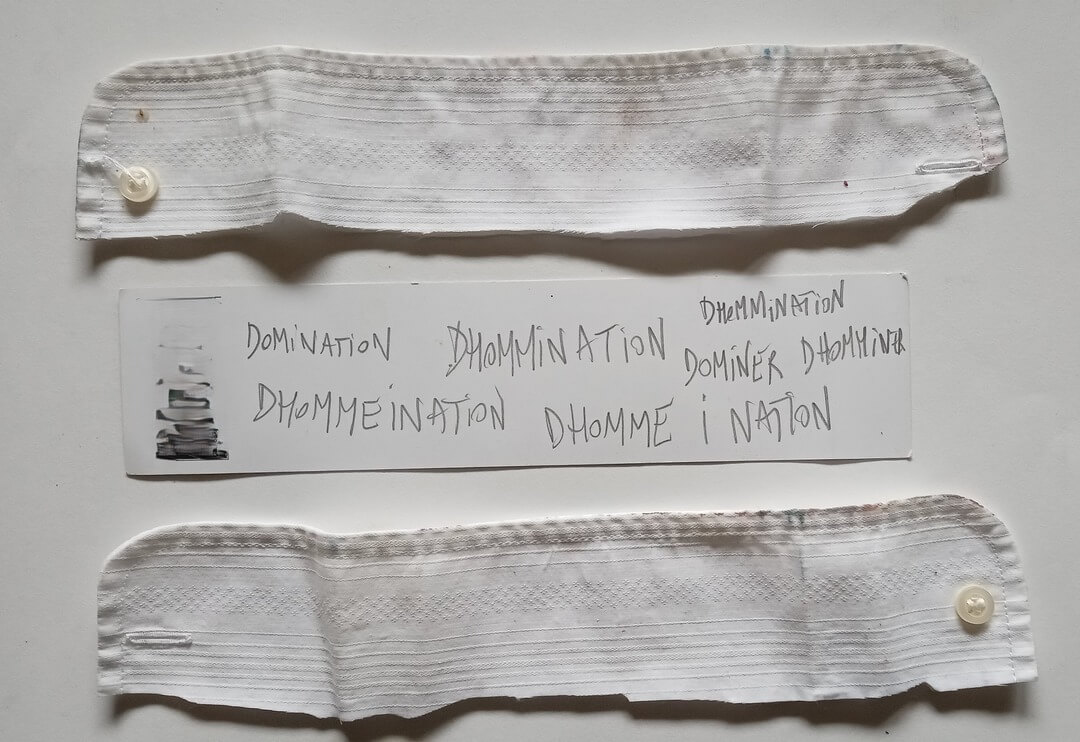 DHEMMINATION
DOMINATION DHOMMINATION DOMINER DHOMMINER
DHOMMEINATION DHOMME I NATION